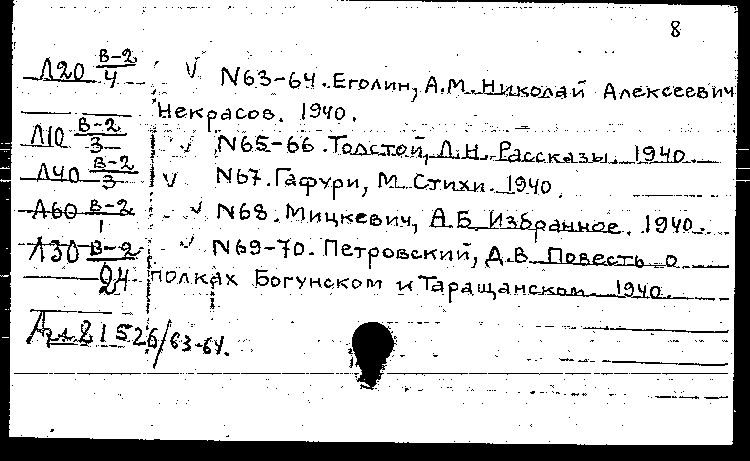 8
Л20 В-2/4 √ N63-64. Еголин, А.М. Николай Алексеевич
Некрасов. 1940.
Л10 В-2/3 √ N65-66. Толстой, Л.Н. Рассказы. 1940.
Л40 В-2/3 √ N67. Гафури, М. Стихи. 1940.
Л60 В-2/1 √ N68. Мицкевич, А.Б. Избранное. 1940.
Л30 В-2/24 √ N69-70. Петровский, Д.В. Повесть о
полках Богунском и Таращанском. 1940.
21526/63-64.